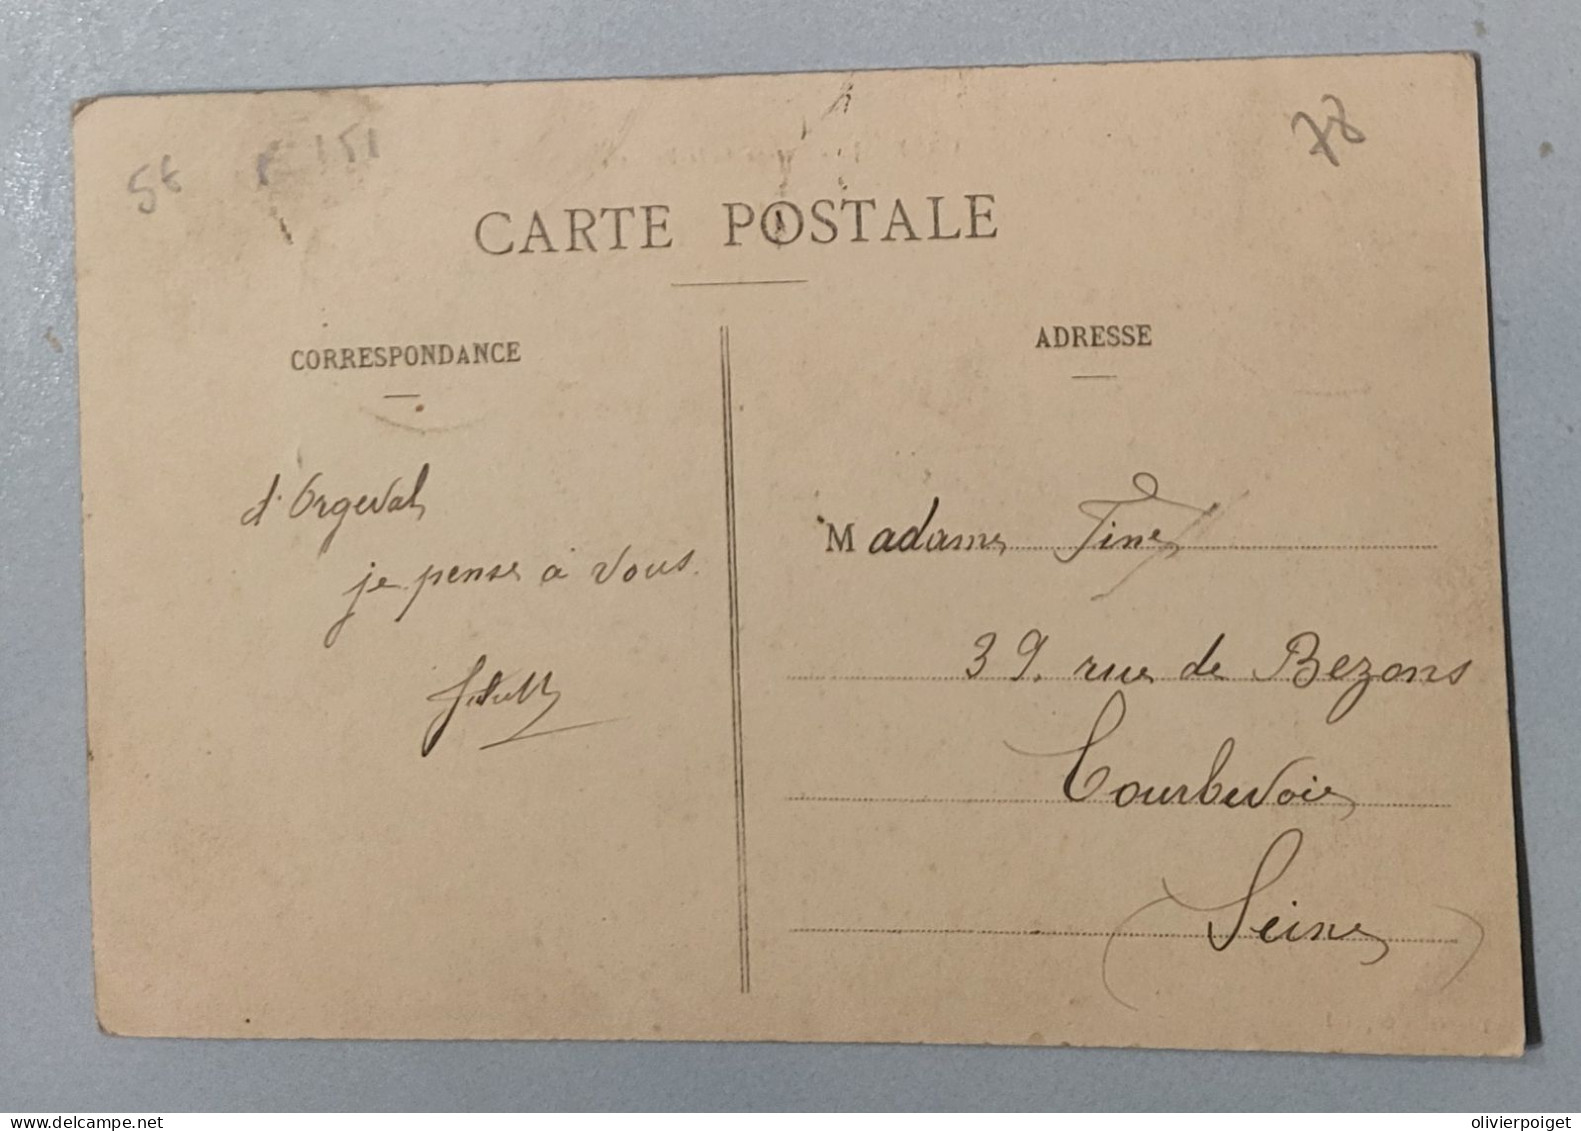 5€ 151
78
CARTE POSTALE
CORRESPONDANCE
d'Orgeval
je pense à vous.
ADRESSE
Madame Fine
39. rue de Bezons
Courbevoie
(Seine)
delcampe.net
olivierpoiget